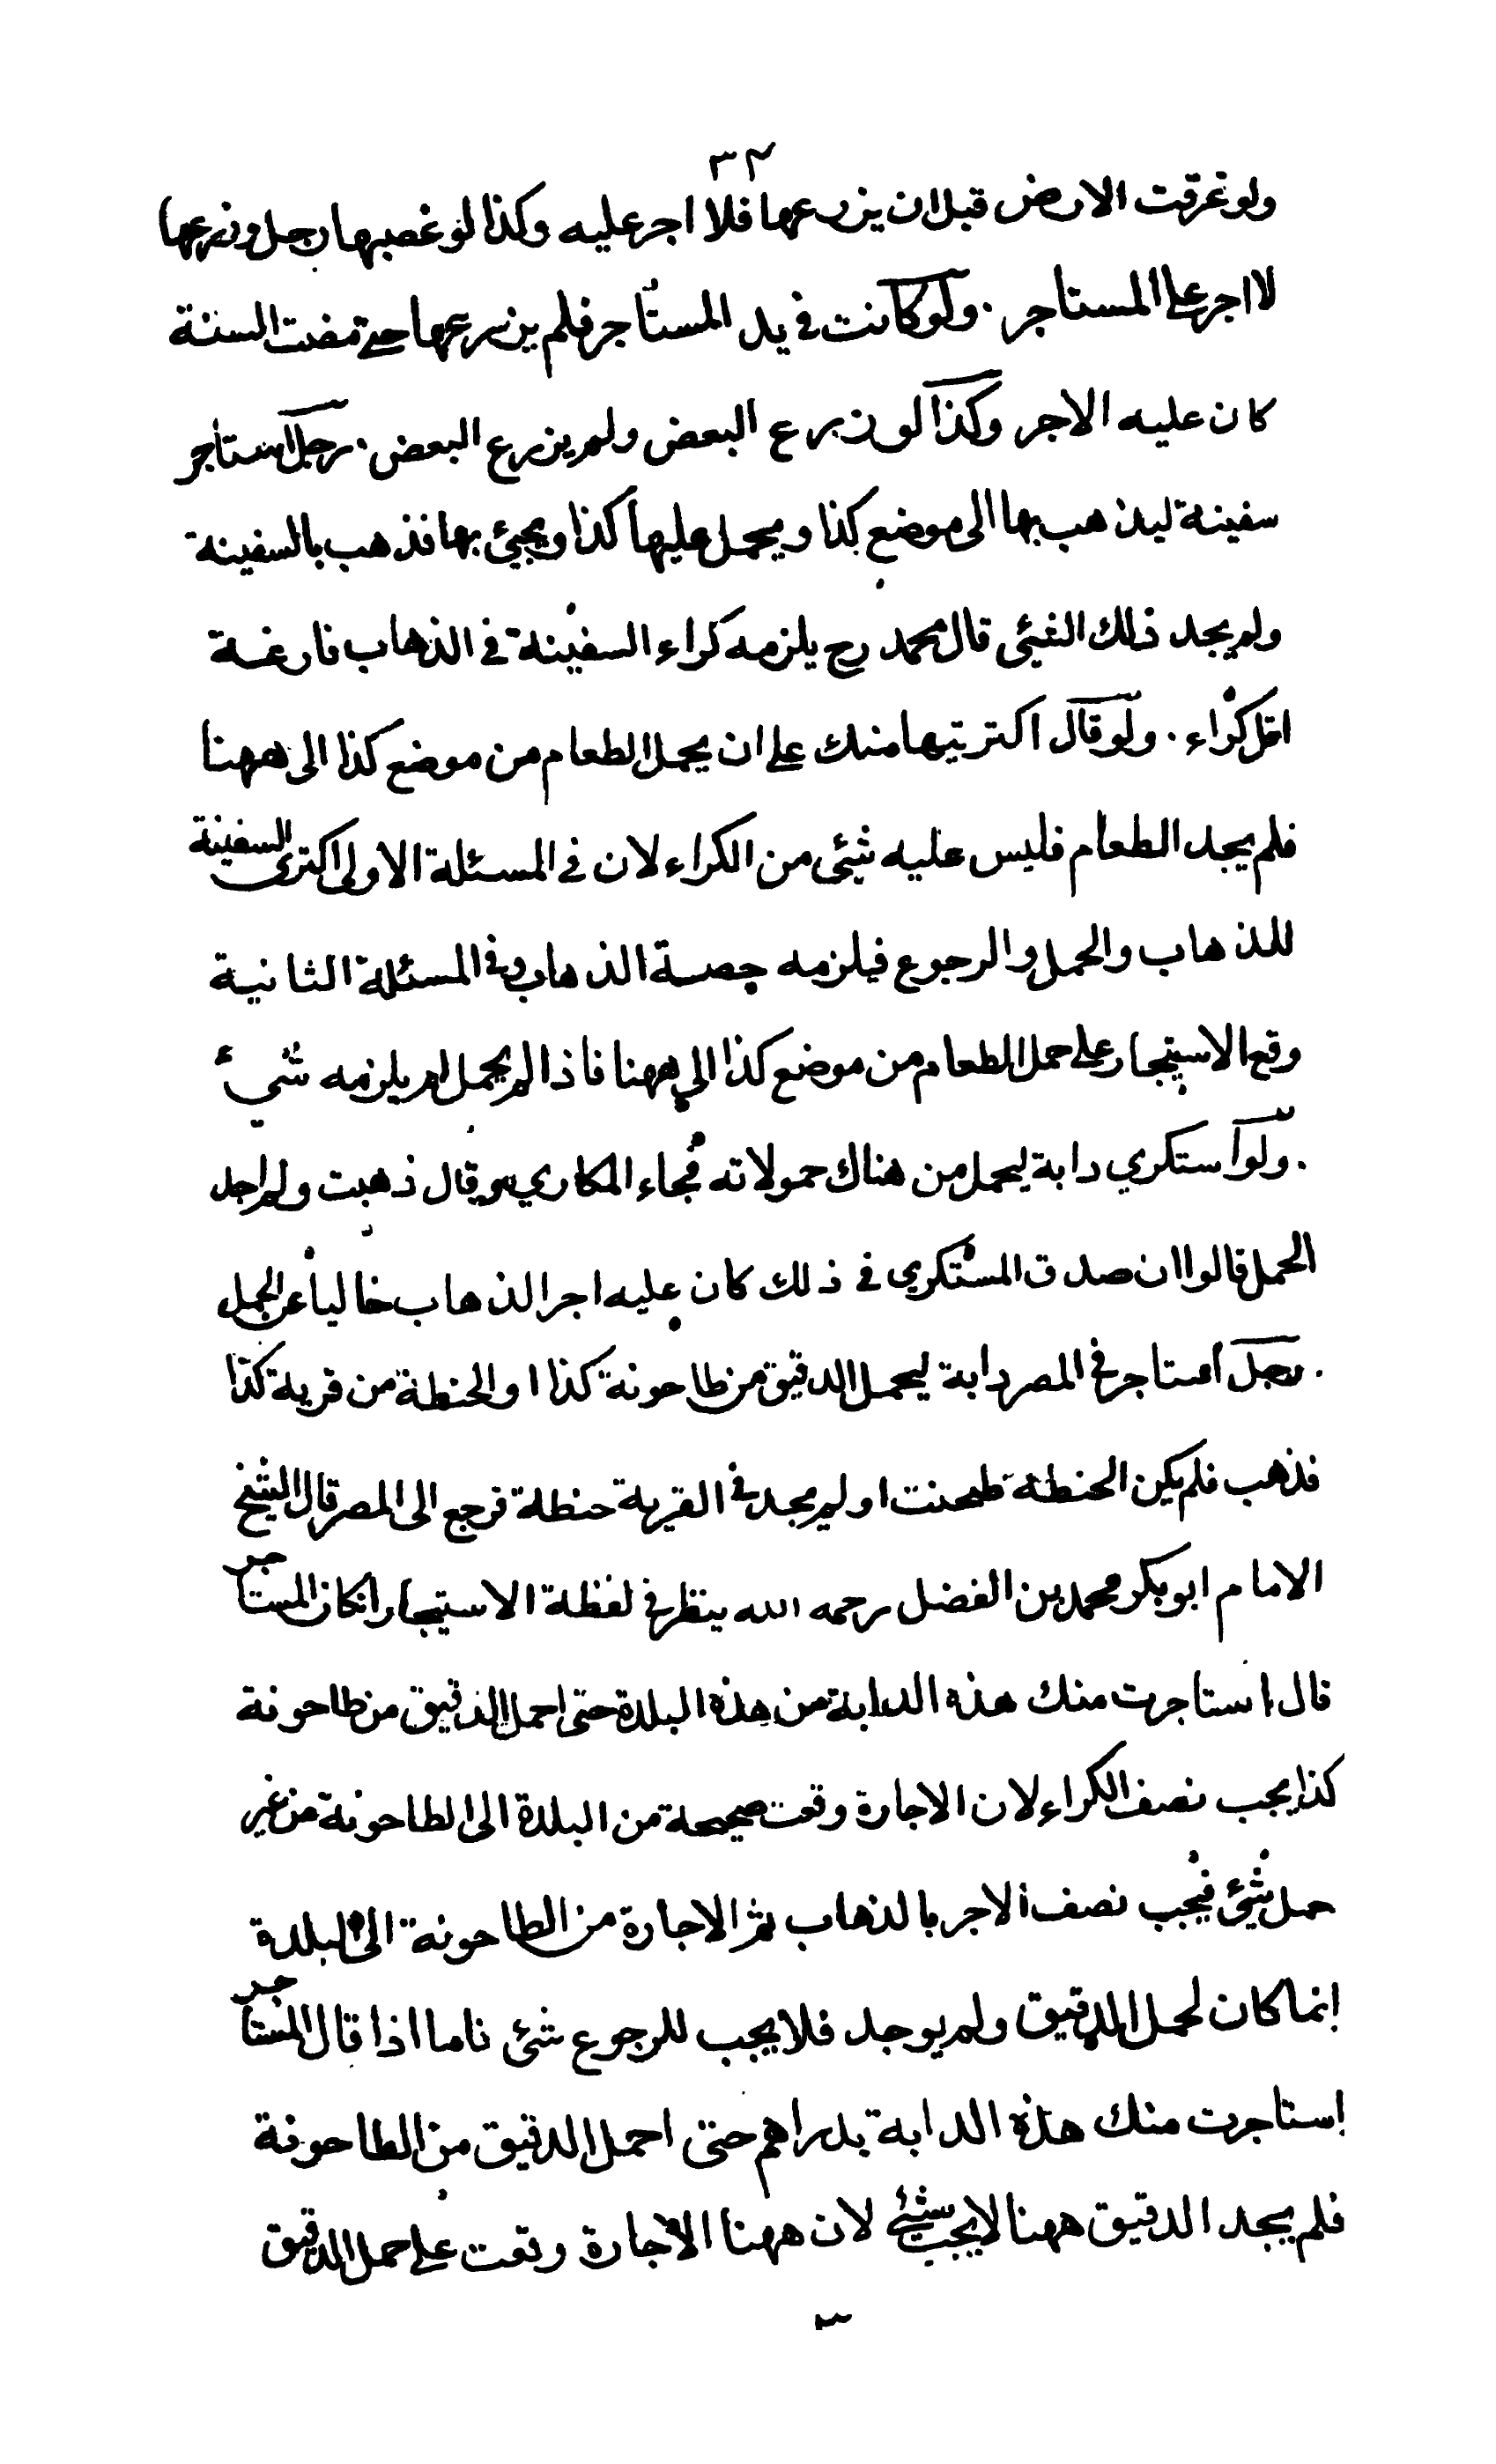 ٣٢
ولو غرقت الارض قبل ان يزرعها فلا اجر عليه وكذا لو غصبها رجل وزرعها
لا اجر على المستاجر . ولو كانت في يد المستاجر فلم يزرعها حتى مضت السنة
كان عليه الاجر وكذا لو زرع البعض ولم يزرع البعض . رجل استاجر
سفينة ليذهب بها الى موضع كذا ويحمل عليها كذا ويجيئ بها فذهب بالسفينة
ولم يجد ذلك الشيئ قال محمد رح يلزمه كراء السفينة في الذهاب فارغة
اقل كراء . ولو قال اكتريتها منك على ان يحمل الطعام من موضع كذا الى ههنا
فلم يجد الطعام فليس عليه شيئ من الكراء لان في المسئلة الاولى اكترى السفينة
للذهاب والحمل والرجوع فيلزمه حصة الذهاب وفي المسئلة الثانية
وقع الاستيجار على حمل الطعام من موضع كذا الى ههنا فاذا لم يحمل لم يلزمه شيء
. ولو استكري دابة ليحمل من هناك حمولاته فجاء المكاري وقال ذهبت ولم اجد
الحمل قالوا ان صدق المستكري في ذلك كان عليه اجر الذهاب خالياً عن الحمل
. رجل استاجر في المصر دابة ليحمل الدقيق من طاحونة كذا او الحنطة من قرية كذا
فذهب فلم يكن الحنطة طحنت او لم يجد في القرية حنطة فرجع الى المصر قال الشيخ
الامام ابو بكر محمد بن الفضل رحمه الله ينظر في لفظة الاستيجار ان كان المستاجر
قال استاجرت منك هذه الدابة من هذه البلدة حتى احمل الدقيق من طاحونة
كذا يجب نصف الكراء لان الاجارة وقعت صحيحة من البلدة الى الطاحونة من غير
حمل شيئ فيجب نصف الاجر بالذهاب ثم الاجارة من الطاحونة الى البلدة
انما كان لحمل الدقيق ولم يوجد فلا يجب للرجوع شئ فاما اذا قال المستاجر
استاجرت منك هذه الدابة بدراهم حتى احمل الدقيق من الطاحونة
فلم يجد الدقيق ههنا لا يجب شيئ لان ههنا الاجارة وقعت على حمل الدقيق